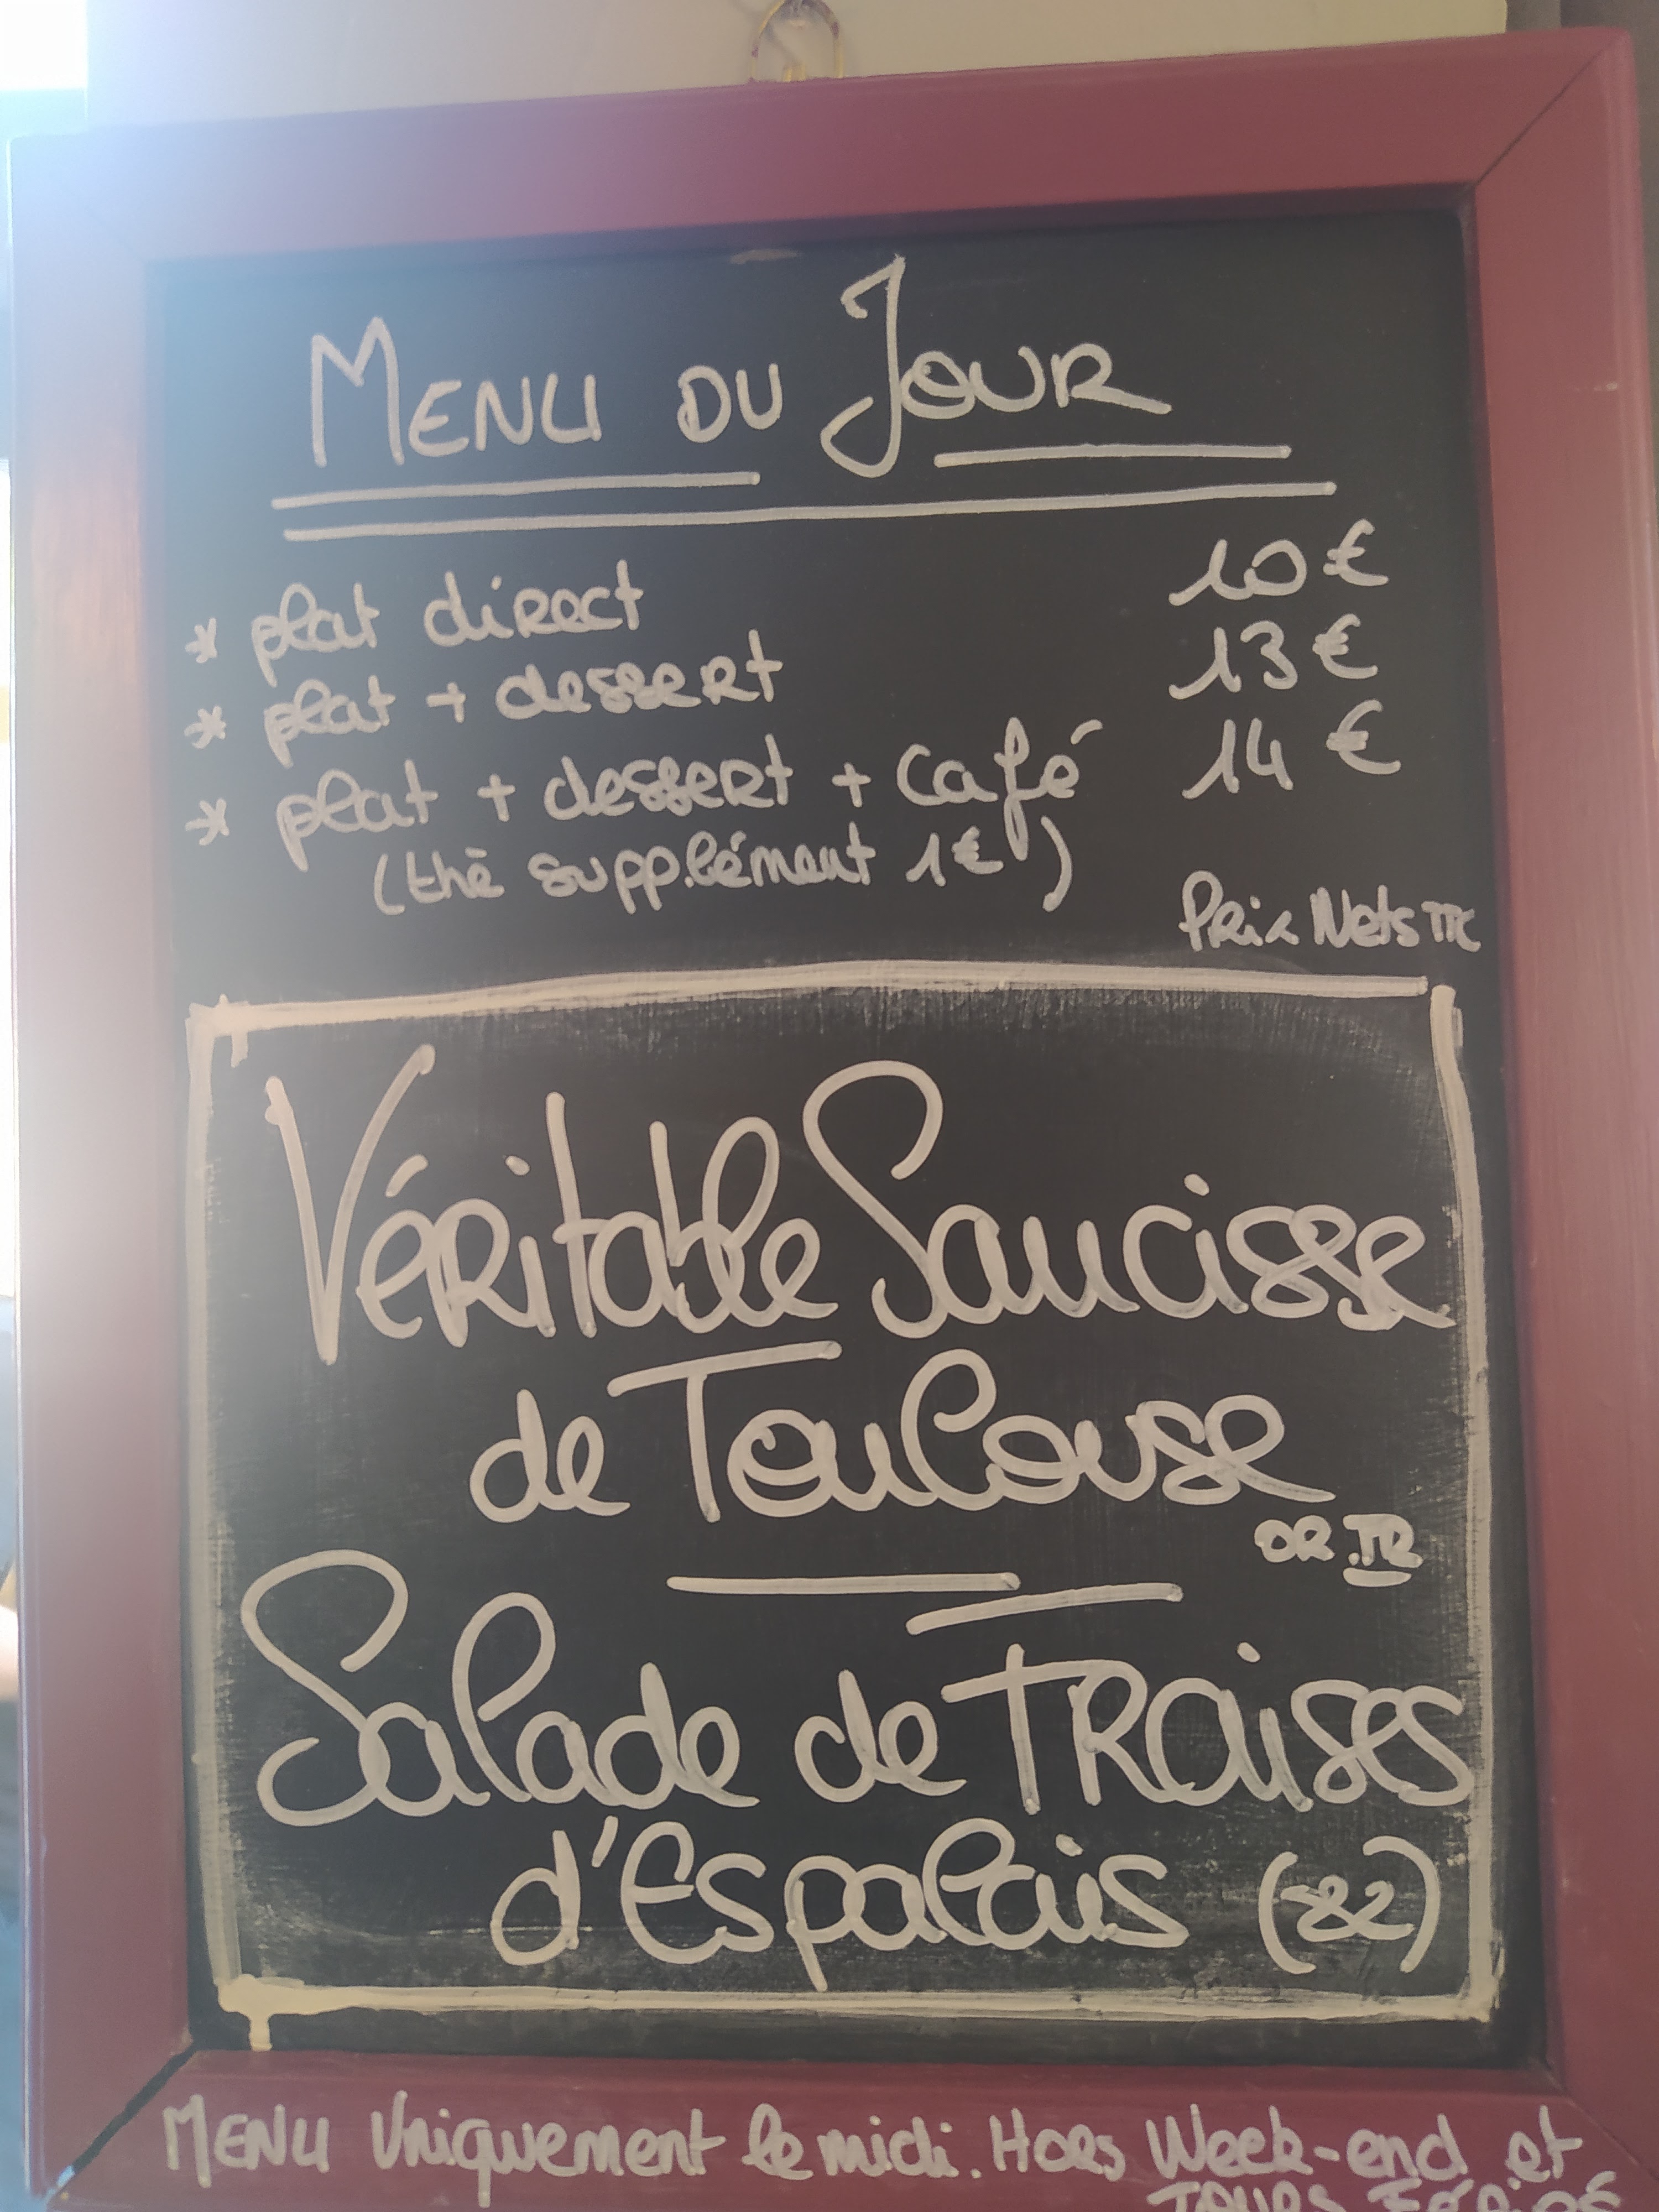 MENU DU JOUR
* plat direct 10 €
* plat + dessert 13 €
* plat + dessert + café 14 €
(thé supplément 1€)
Prix Nets TTC
Véritable Saucisse
de Toulouse
OR.TR
Salade de FRaises
d'Espalais (82)
MENU Uniquement le midi. Hors Week-end et
JOURS FÉRIÉS